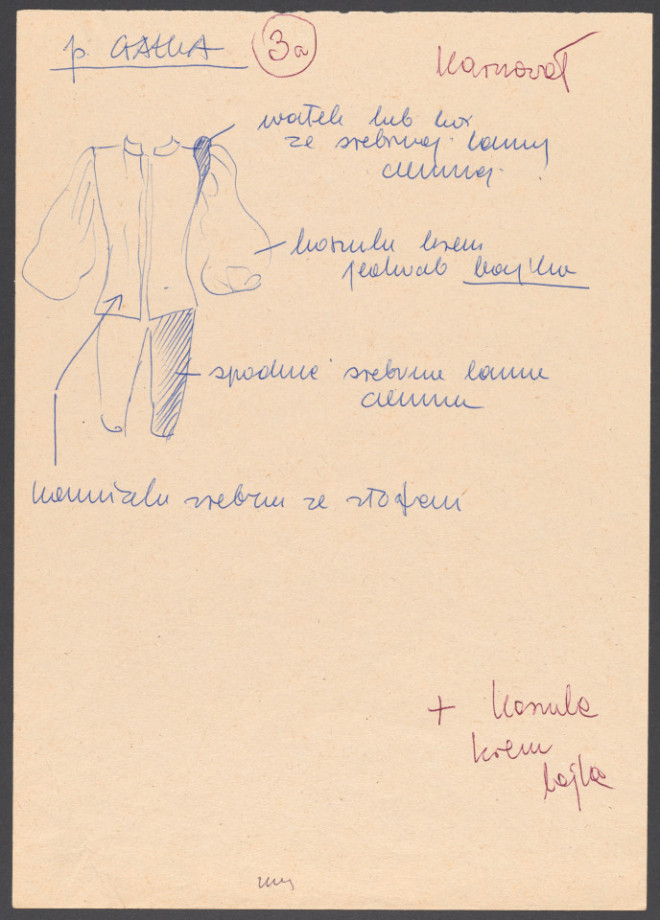 p GAŁKA
3a
Karnawał
wałek lub kor
ze srebrnej lamy
ciemnej
koszula krem
jedwab bajka
spodnie srebrne lama
ciemna
kamizelu srebrn ze złotem
+ koszula
krem
bajka